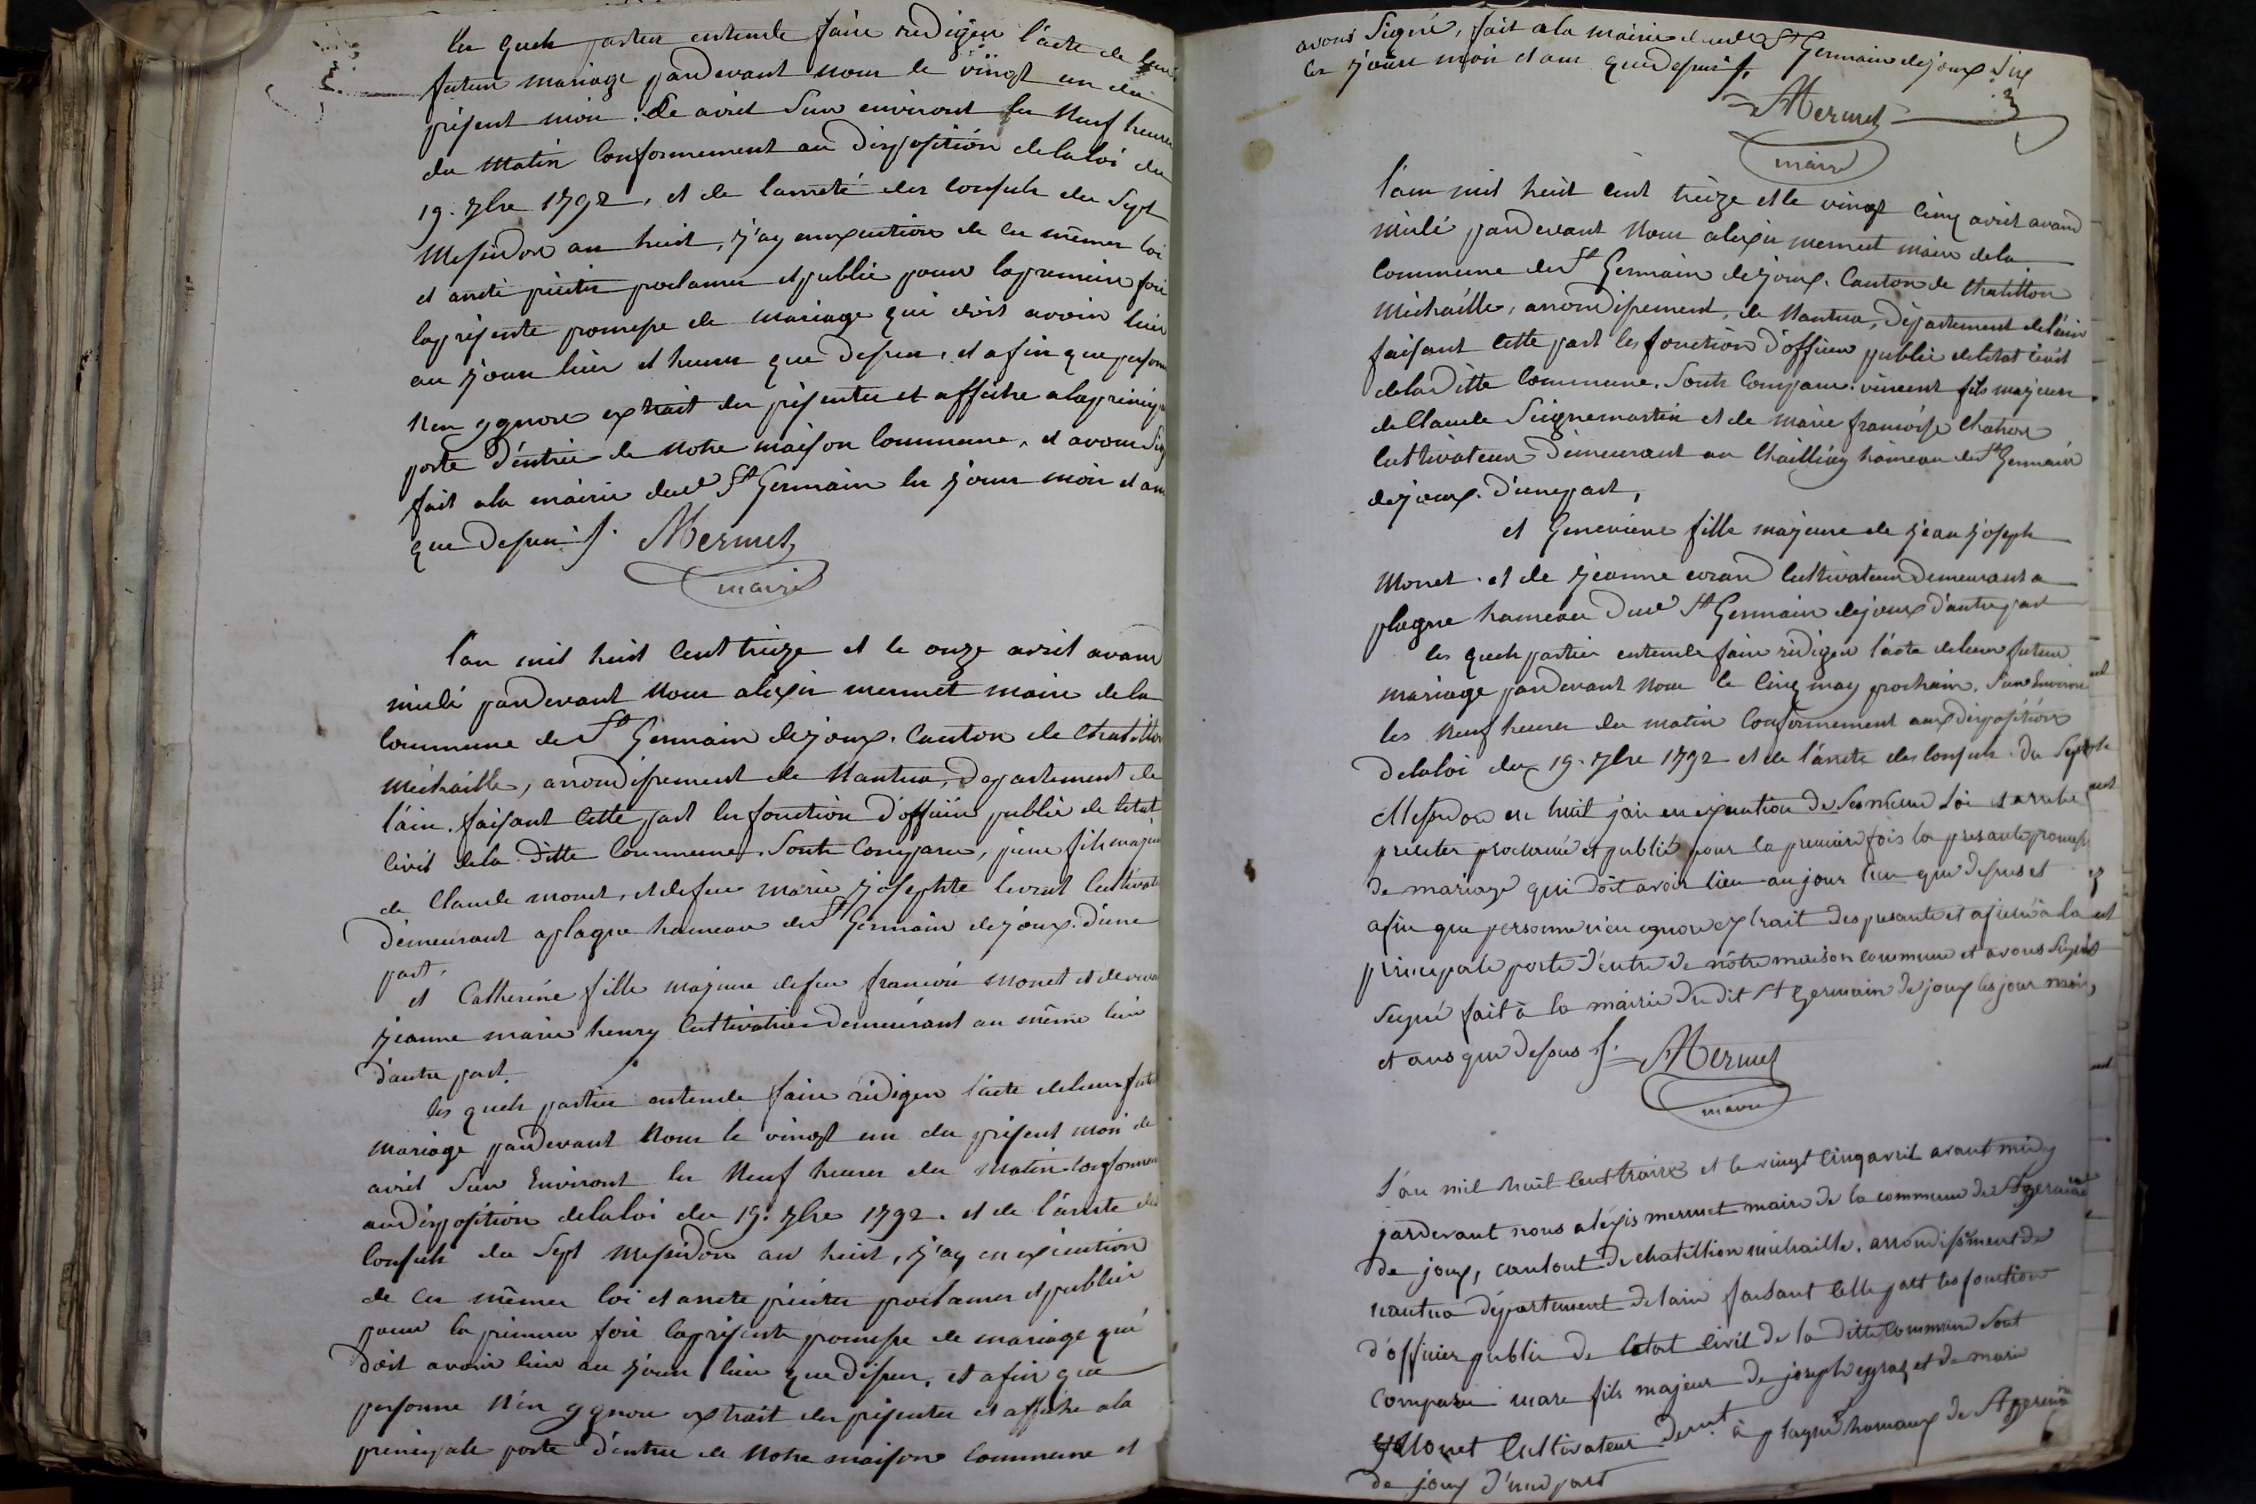 les quels parties entende faire rediger l'acte de leur
futeur mariage pardevant nour le vingt un du
présent moi. de avril sur environt les neuf heures
du matin conformement au disposition de la loi du
19. 7bre 1792, et de l'arreté des consuls du sept
messidor an huit, j'ay en execution de ces mêmes loi
et arreté précités proclamer et publié pour la premiere foi
la présente promesse de mariage qui doit avoir lieu
au jour lieu et heure que dessu, et afin que person
n'en ygnore extrait des présentes et affiche a la princip
porte d'éntrée de notre maison commune, et avons sig
fait a la mairie dud St Germain les jour moi et an
que dessu ./.
AMermet
maire
l'an mil huit cent treize et le onze avril avant
midi pardevant nour aléxis mermet maire de la
commune de St Germain de joux. canton de chatillon
michaille, arrondissement de nantua, departement de
l'ain. faisant cette part les fonction d'officié public de l'etat
civil de la ditte commune. sont comparu, piere fils majeu
de claude monet, et de feu marie josephte levrat cultivat
démeurant a plagne hameau de St Germain de joux. d'une
part,
et catherine fille majeure de feu francoi monet et de
jeanne marie henry cultivatrice demeurant au même lieu
d'autre part.
les quels parties entende faire rédiger l'acte de leur fut
mariage pardevant nour le vingt un du présent moi de
avril sur environt les neuf heures du matin conformem
au disposition de la loi du 19. 7bre 1792. et de l'arreté des
consuls du sept messidor an huit, j'ay en execution
de ces mêmes loi et arreté précités proclamer et publier
pour la premiere foi la présente promesse de mariage qui
doit avoir lieu au jour lieu que dessu, et afin que
personne n'en ygnore extrait des présentes et affiche a la
principale porte d'entrée de notre maison commune et
avons signé, fait a la mairie dud St Germain de joux
les jour moi et an que dessu ./.
AMermet
maire
l'an mil huit cent treize et le vingt cinq avril avand
midi pardevant nour alexis mermet maire de la
commune de St Germain de joux. canton de chatillon
michaille, arrondissement, de nantua, département de l'ain
faisant cette part les fonction d'officier public de l'etat civil
de la ditte commune. sont comparu. vincent fils majeur
de claude seignemartin et de marie francoise chatron
cultivateur démeurant au hameau de St Germain
de joux. d'une part,
et Genevieve fille majeure de jean joseph
monet. et de jeanne cultivateur demeurant a
plagne hameau dud St Germain de joux d'autre part
les quels parties entende faire rédiger l'acte de leur futeur
mariage pardevant nour le cinq may prochain, sur environ
les neuf heures du matin conformement aux dispositions
de la loi du 19. 7bre 1792 et de l'arrete des consuls du sept
Messidor an huit j'ai en exécution de ses même loi et arreté
précités proclamé et publié pour la premiere fois la presante promess
de mariage qui doit avoir lieu au jour lieu que dessus et
afin que personne n'en ygnore extrait des presantes et affiché à la
principale porte d'entré de nôtre maison commune et avons signés
signé fait à la mairie du dit St Germain de joux les jour mois,
et ans que dessus ./. AMermet
maire
l'an mil huit cent traize et le vingt cinq avril avant midy
pardevant nous aléxis mermet maire de la commune de St germain
de joux, cantont de chatillion michaille, arrondissement de
nantua département de lain faisant cette part les fonction
d'officier public de letat civil de la ditte commune sont
comparu marc fils majeur de joseph egraz et de marie
Monet cultivateur demt. à plagne hameaux de St germain
de joux d'une part